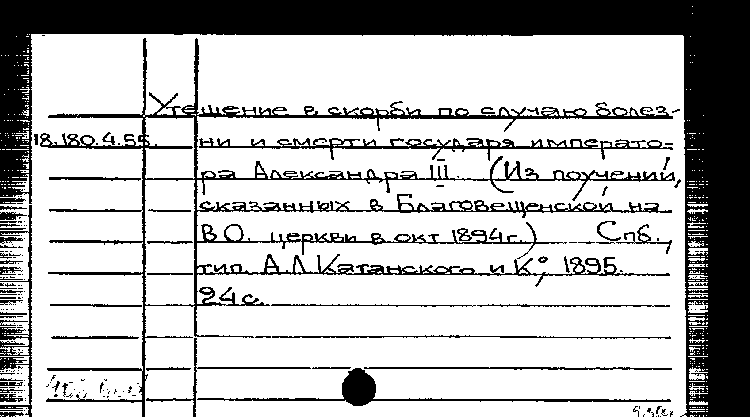 Утешение в скорби по случаю болез-
18.180.4.55. ни и смерти государя императо-
ра Александра III. (Из поучений,
сказанных в Благовещенской на
В О. церкви в окт 1894 г.) Спб.,
тип. А. Л Катанского и К°, 1895.
24 с.